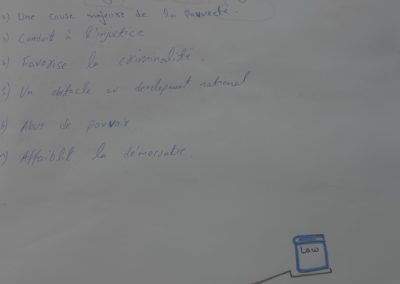 2) Une cause majeure de la pauvreté.
3) Conduit à l'injustice
4) Favorise la criminalité.
5) Un obstacle au development national
6) Abus de pouvoir
7) Affaiblit la démocratie.
Law